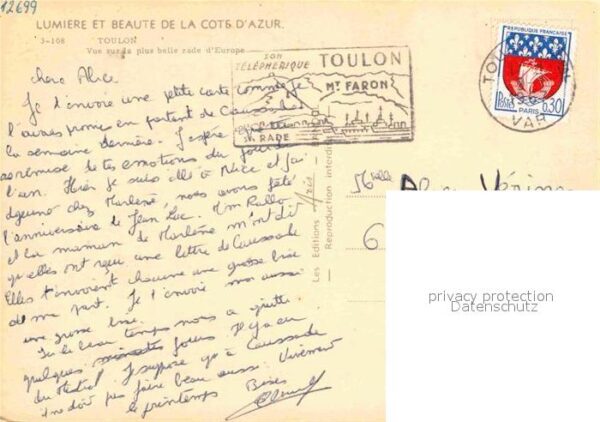 12699
LUMIERE ET BEAUTE DE LA COTE D'AZUR.
3-108 TOULON
Vue sur la plus belle rade d'Europe
SON TÉLÉPHERIQUE
TOULON
MT FARON
SA RADE
REPUBLIQUE FRANÇAISE
POSTES 0,30
PARIS
TOULON
VAR
chère Alice
Je t'envoie une petite carte comme je
l'avais promis en partant de Caussade
la semaine dernière. J'espère que tu
remise de tes émotions du jour de
l'an. Hier je suis allé à Nice et j'ai
déjeuné chez Marlène, nous avons fêté
l'anniversaire de Jean Luc. Mme Rallo
et la maman de Marlène m'ont dit
qu'elles ont reçu une lettre de Caussade
Elles t'envoient chacune une grosse bise
de ma part. Je t'envoie moi aussi
une grosse bise.
Ici le beau temps nous a quitté
quelques jours. Il y a eu
du Mistral. Je suppose qu'à Caussade
il ne doit pas faire beau aussi. Vivement
le printemps. Bises
Les Editions Aris
Reproduction interdite
Melle
6
privacy protection
Datenschutz